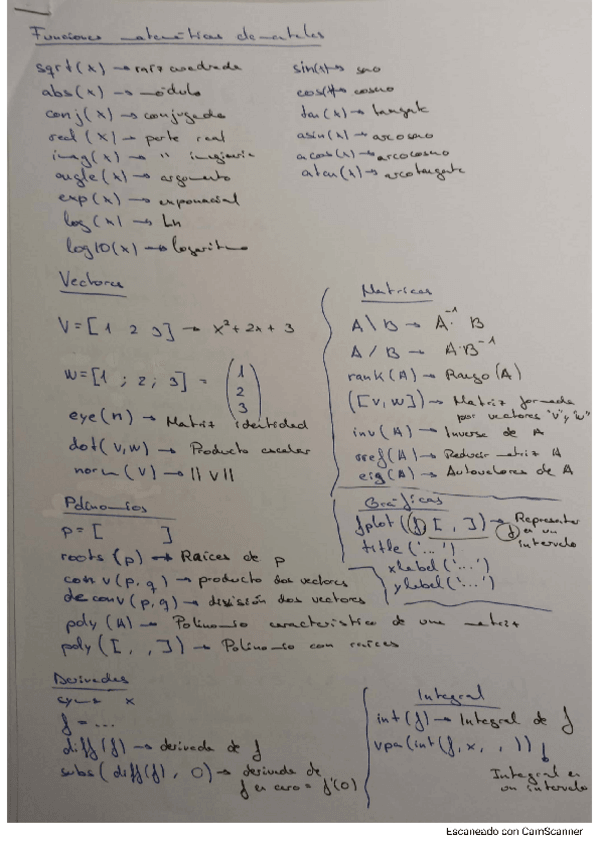 Funciones matemáticas elementales
sqrt(x) → raíz cuadrada
abs(x) → módulo
conj(x) → conjugado
real(x) → parte real
imag(x) → " imaginaria
angle(x) → argumento
exp(x) → exponencial
log(x) → Ln
log10(x) → logaritmo
sin(x) → seno
cos(x) → coseno
tan(x) → tangente
asin(x) → arcoseno
acos(x) → arcocoseno
atan(x) → arcotangente
Vectores
V = [1 2 3] → x² + 2x + 3
W = [1 ; 2 ; 3] = (1 2 3)
eye(n) → Matriz identidad
dot(v,w) → Producto escalar
norm(v) → ||v||
Matrices
A \ B → A⁻¹· B
A / B → A·B⁻¹
rank(A) → Rango(A)
([v,w]) → Matriz formada
por vectores "v" y "w"
inv(A) → Inversa de A
rref(A) → Reducir matriz A
eig(A) → Autovalores de A
Polinomios
p = [ ]
roots(p) → Raíces de p
conv(p,q) → producto dos vectores
deconv(p,q) → división dos vectores
poly(A) → Polinomio característico de una matriz
poly([ , , ]) → Polinomio con raíces
Gráficas
fplot(f [ , ]) → Representar
f en un
intervalo
title('...')
xlabel('...')
ylabel('...')
Derivadas
syms x
f = ...
diff(f) → derivada de f
subs(diff(f), 0) → derivada de
f en cero = f'(0)
Integral
int(f) → Integral de f
vpa(int(f,x, , ))
Integral en
un intervalo
Escaneado con CamScanner